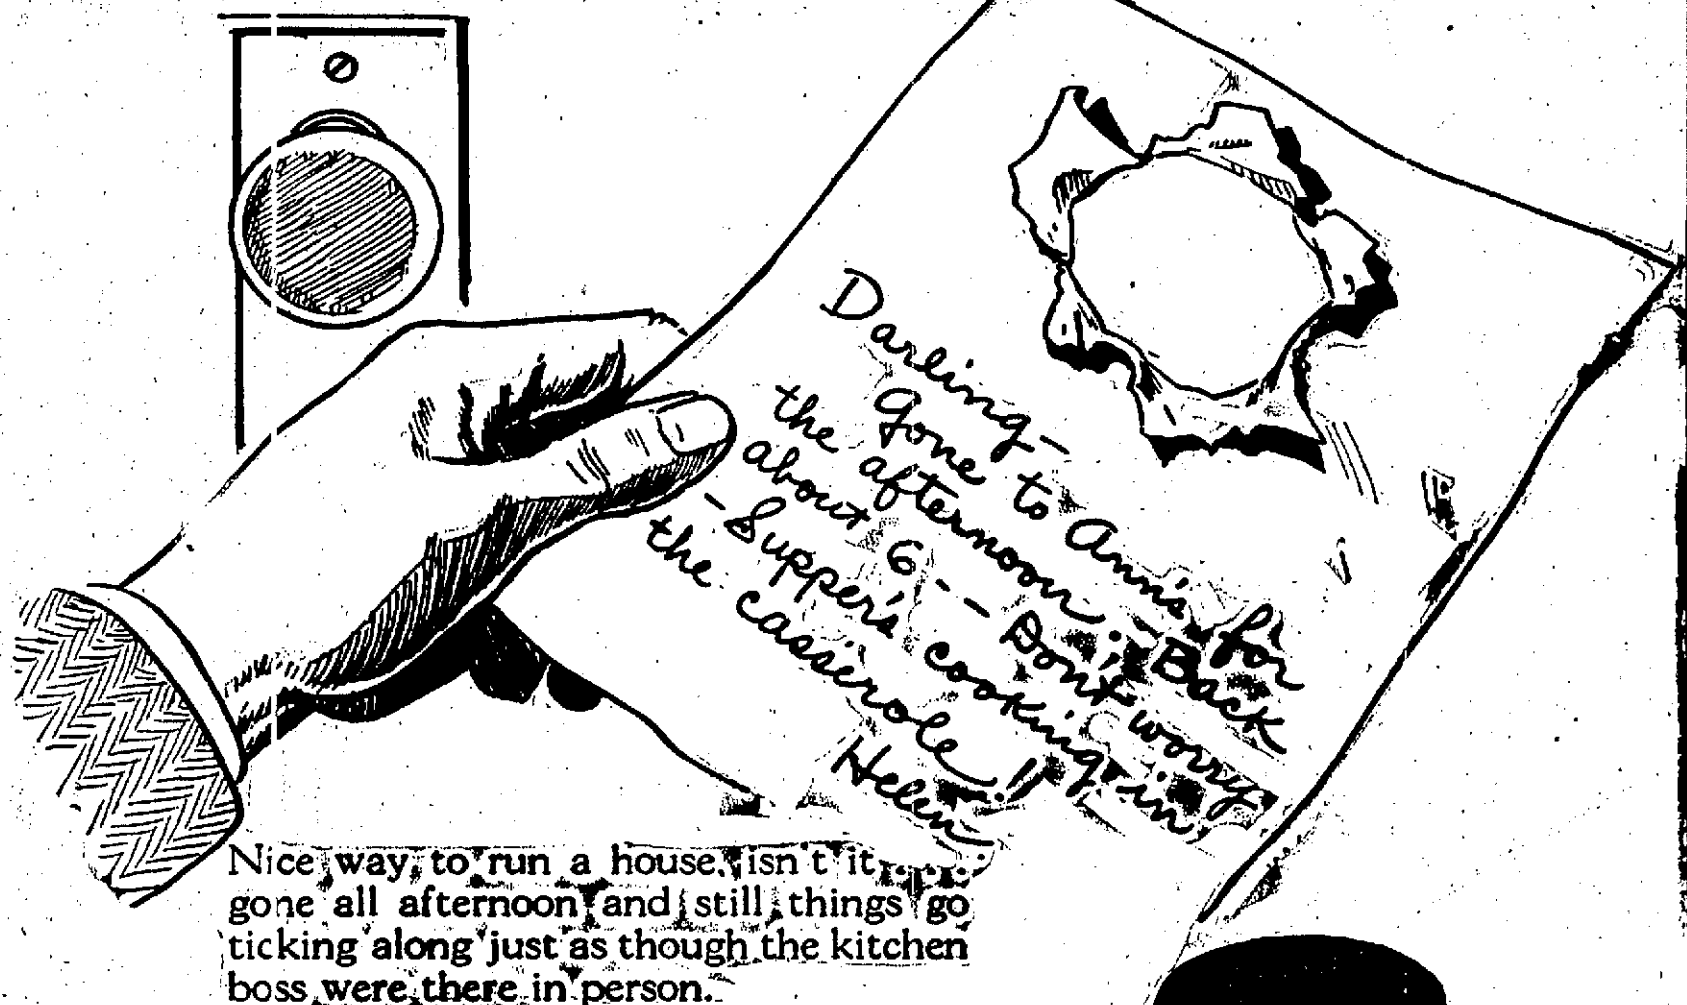 Darling-
Gone to Ann's for
the afternoon; Back
about 6 - - Don't worry
- Supper's cooking in
the casserole!!
Helen
Nice way to run a house, isn't it....
gone all afternoon and still things go
ticking along just as though the kitchen
boss were there in person.